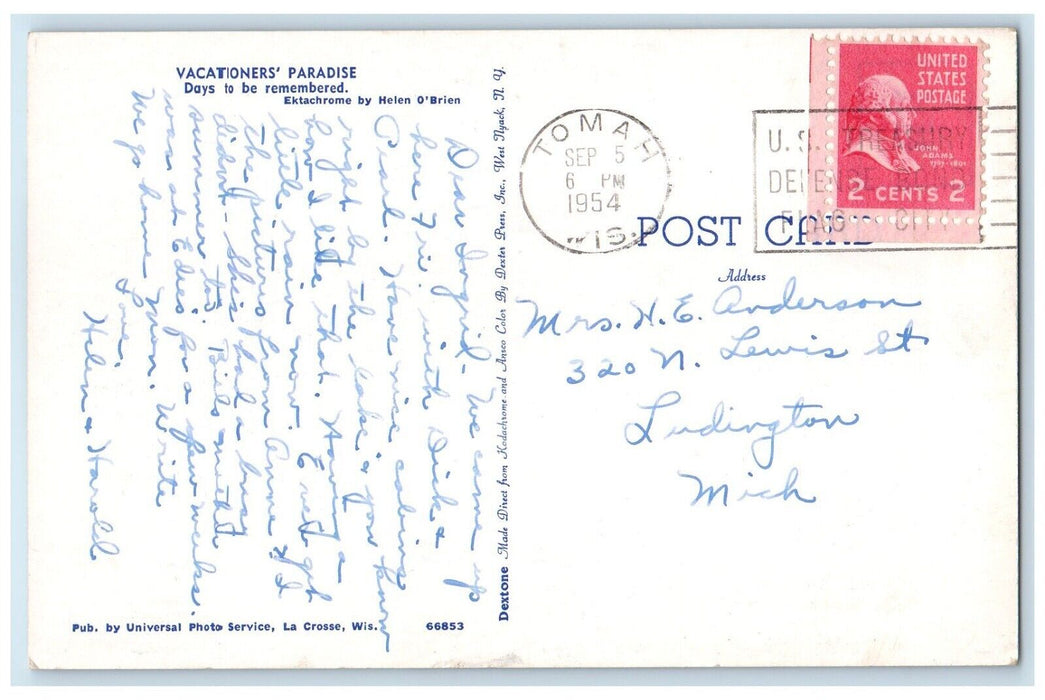 VACATIONERS' PARADISE
Days to be remembered.
Ektachrome by Helen O'Brien
Dear Ingrid - We came up
here Fri. with Dick &
Pearl. Have nice cabins
right by the lake & you know
how I like that. Having a
little rain now. Ene got
the pictures from Anne & I
didn't - She's had a busy
summer too. Bill's mother
was at Edie's for a few weeks.
We go home Mon. Write
Love,
Helen & Harold
Pub. by Universal Photo Service, La Crosse, Wis.
66853
Dextone Made Direct from Kodachrome and Ansco Color By Dexter Press, Inc., West Nyack, N. Y.
TOMAH
SEP 5
6 PM
1954
WIS.
U.S. TREASURY
UNITED
STATES
POSTAGE
JOHN
ADAMS
2 CENTS 2
POST CARD
Address
Mrs. H. E. Anderson
320 N. Lewis St
Ludington
Mich